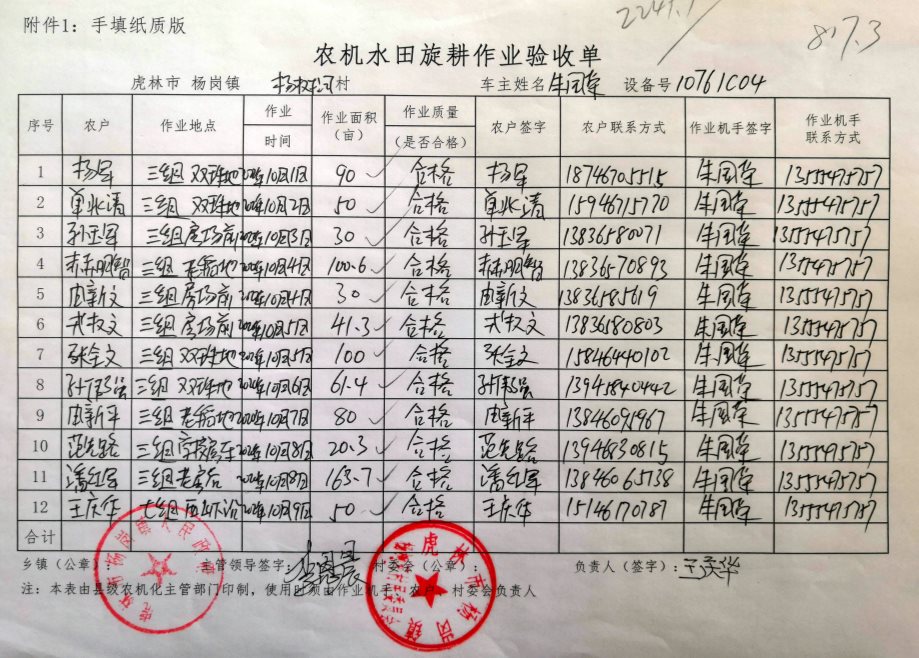 附件1：手填纸质版
2241.1
817.3
农机水田旋耕作业验收单
虎林市 杨岗镇 村 车主姓名 牛国荣 设备号 10761C04
序号 农户 作业地点 作业时间 作业面积（亩） 作业质量（是否合格） 农户签字 农户联系方式 作业机手签字 作业机手联系方式
1 杨军 三组 双 10月1日 90 合格 杨军 18746705515 牛国荣 13555475757
2 单兆清 三组 双 10月2日 50 合格 单兆清 15946715770 牛国荣 13555475757
3 孙玉军 三组 房场前 10月3日 30 合格 孙玉军 13836580071 牛国荣 13555475757
4 三组 老稻地 10月4日 100.6 合格 13836570893 牛国荣 13555475757
5 由新文 三组 房场前 10月4日 30 合格 由新文 13836585619 牛国荣 13555475757
6 文 三组 房场前 10月5日 41.3 合格 文 13836580803 牛国荣 13555475757
7 张全文 三组 双 10月5日 100 合格 张全文 15846440102 牛国荣 13555475757
8 孙 三组 双 10月6日 61.4 合格 孙 13945840442 牛国荣 13555475757
9 由新平 三组 老稻地 10月7日 80 合格 由新平 13846091967 牛国荣 13555475757
10 范先路 三组 学校房东 10月8日 20.3 合格 范先路 13946830815 牛国荣 13555475757
11 潘红军 三组 老房后 10月8日 163.7 合格 潘红军 13846065738 牛国荣 13555475757
12 王庆华 七组 10月9日 50 合格 王庆华 15146170787 牛国荣 13555475757
合计
乡镇（公章）： 主管领导签字： 村委会（公章）： 负责人（签字）：
注：本表由县级农机化主管部门印制，使用时须由作业机手、农户、村委会负责人
虎林市杨岗镇人民政府
虎林市杨岗镇